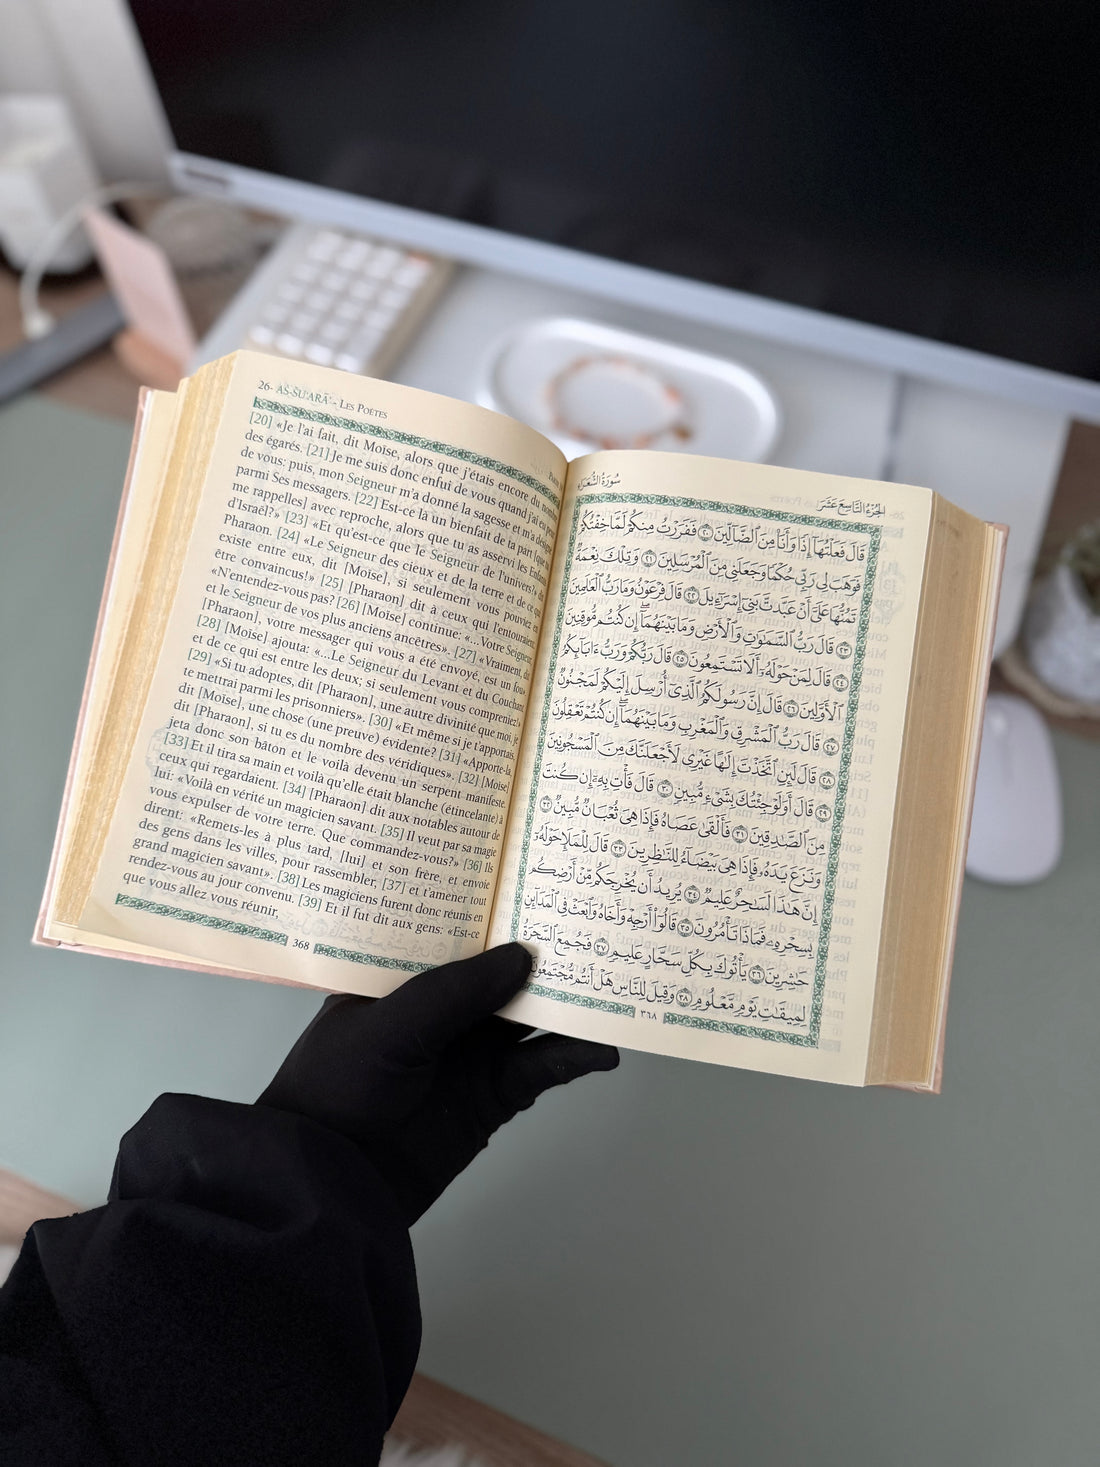 26- AŠ-ŠU'ARĀ' - LES POÈTES
[20] «Je l'ai fait, dit Moïse, alors que j'étais encore du nombre
des égarés. [21] Je me suis donc enfui de vous quand j'ai eu peur
de vous; puis, mon Seigneur m'a donné la sagesse et m'a désigné
parmi Ses messagers. [22] Est-ce là un bienfait de ta part [que tu
me rappelles] avec reproche, alors que tu as asservi les Enfants
d'Israël?» [23] «Et qu'est-ce que le Seigneur de l'univers?» dit
Pharaon. [24] «Le Seigneur des cieux et de la terre et de ce qui
existe entre eux, dit [Moïse], si seulement vous pouviez en
être convaincus!» [25] [Pharaon] dit à ceux qui l'entouraient:
«N'entendez-vous pas? [26] [Moïse] continue: «...Votre Seigneur,
et le Seigneur de vos plus anciens ancêtres». [27] «Vraiment, dit
[Pharaon], votre messager qui vous a été envoyé, est un fou».
[28] [Moïse] ajouta: «...Le Seigneur du Levant et du Couchant
et de ce qui est entre les deux; si seulement vous compreniez!»
[29] «Si tu adoptes, dit [Pharaon], une autre divinité que moi, je
te mettrai parmi les prisonniers». [30] «Et même si je t'apportais,
dit [Moïse], une chose (une preuve) évidente? [31] «Apporte-la,
dit [Pharaon], si tu es du nombre des véridiques». [32] [Moïse]
jeta donc son bâton et le voilà devenu un serpent manifeste
[33] Et il tira sa main et voilà qu'elle était blanche (étincelante) à
ceux qui regardaient. [34] [Pharaon] dit aux notables autour de
lui: «Voilà en vérité un magicien savant. [35] Il veut par sa magie
vous expulser de votre terre. Que commandez-vous?» [36] Ils
dirent: «Remets-les à plus tard, [lui] et son frère, et envoie
des gens dans les villes, pour rassembler, [37] et t'amener tout
grand magicien savant». [38] Les magiciens furent donc réunis en
rendez-vous au jour convenu. [39] Et il fut dit aux gens: «Est-ce
que vous allez vous réunir,
368
سُورَةُ الشُّعَرَاءِ
الجُزْءُ التَّاسِعَ عَشَرَ
قَالَ فَعَلْتُهَآ إِذًا وَأَنَا۠ مِنَ ٱلضَّآلِّينَ ٢٠ فَفَرَرْتُ مِنكُمْ لَمَّا خِفْتُكُمْ
فَوَهَبَ لِى رَبِّى حُكْمًا وَجَعَلَنِى مِنَ ٱلْمُرْسَلِينَ ٢١ وَتِلْكَ نِعْمَةٌ
تَمُنُّهَا عَلَىَّ أَنْ عَبَّدتَّ بَنِىٓ إِسْرَٰٓءِيلَ ٢٢ قَالَ فِرْعَوْنُ وَمَا رَبُّ ٱلْعَٰلَمِينَ
٢٣ قَالَ رَبُّ ٱلسَّمَٰوَٰتِ وَٱلْأَرْضِ وَمَا بَيْنَهُمَآ إِن كُنتُم مُّوقِنِينَ
٢٤ قَالَ لِمَنْ حَوْلَهُۥٓ أَلَا تَسْتَمِعُونَ ٢٥ قَالَ رَبُّكُمْ وَرَبُّ ءَابَآئِكُمُ
ٱلْأَوَّلِينَ ٢٦ قَالَ إِنَّ رَسُولَكُمُ ٱلَّذِىٓ أُرْسِلَ إِلَيْكُمْ لَمَجْنُونٌ
٢٧ قَالَ رَبُّ ٱلْمَشْرِقِ وَٱلْمَغْرِبِ وَمَا بَيْنَهُمَآ إِن كُنتُمْ تَعْقِلُونَ
٢٨ قَالَ لَئِنِ ٱتَّخَذْتَ إِلَٰهًا غَيْرِى لَأَجْعَلَنَّكَ مِنَ ٱلْمَسْجُونِينَ
٢٩ قَالَ أَوَلَوْ جِئْتُكَ بِشَىْءٍ مُّبِينٍ ٣٠ قَالَ فَأْتِ بِهِۦٓ إِن كُنتَ
مِنَ ٱلصَّٰدِقِينَ ٣١ فَأَلْقَىٰ عَصَاهُ فَإِذَا هِىَ ثُعْبَانٌ مُّبِينٌ ٣٢
وَنَزَعَ يَدَهُۥ فَإِذَا هِىَ بَيْضَآءُ لِلنَّٰظِرِينَ ٣٣ قَالَ لِلْمَلَإِ حَوْلَهُۥٓ
إِنَّ هَٰذَا لَسَٰحِرٌ عَلِيمٌ ٣٤ يُرِيدُ أَن يُخْرِجَكُم مِّنْ أَرْضِكُم
بِسِحْرِهِۦ فَمَاذَا تَأْمُرُونَ ٣٥ قَالُوٓا۟ أَرْجِهْ وَأَخَاهُ وَٱبْعَثْ فِى ٱلْمَدَآئِنِ
حَٰشِرِينَ ٣٦ يَأْتُوكَ بِكُلِّ سَحَّارٍ عَلِيمٍ ٣٧ فَجُمِعَ ٱلسَّحَرَةُ
لِمِيقَٰتِ يَوْمٍ مَّعْلُومٍ ٣٨ وَقِيلَ لِلنَّاسِ هَلْ أَنتُم مُّجْتَمِعُونَ
٣٦٨